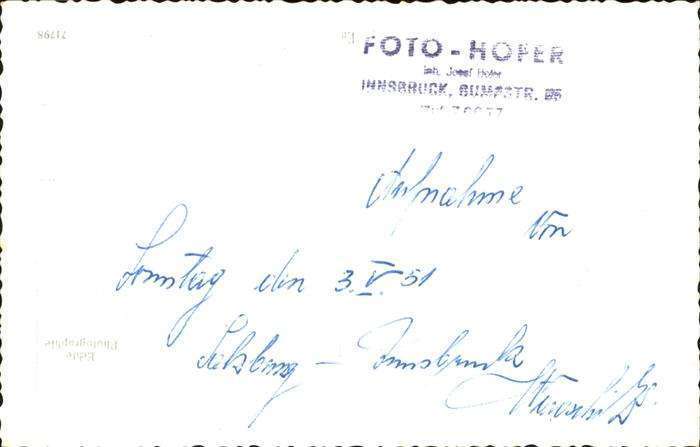 71798
FOTO - HOFER
Inh. Josef Hofer
INNSBRUCK,
Aufnahme
von
Sonntag den 3. V. 51
Salzburg - Innsbruck
Echte
Photographie